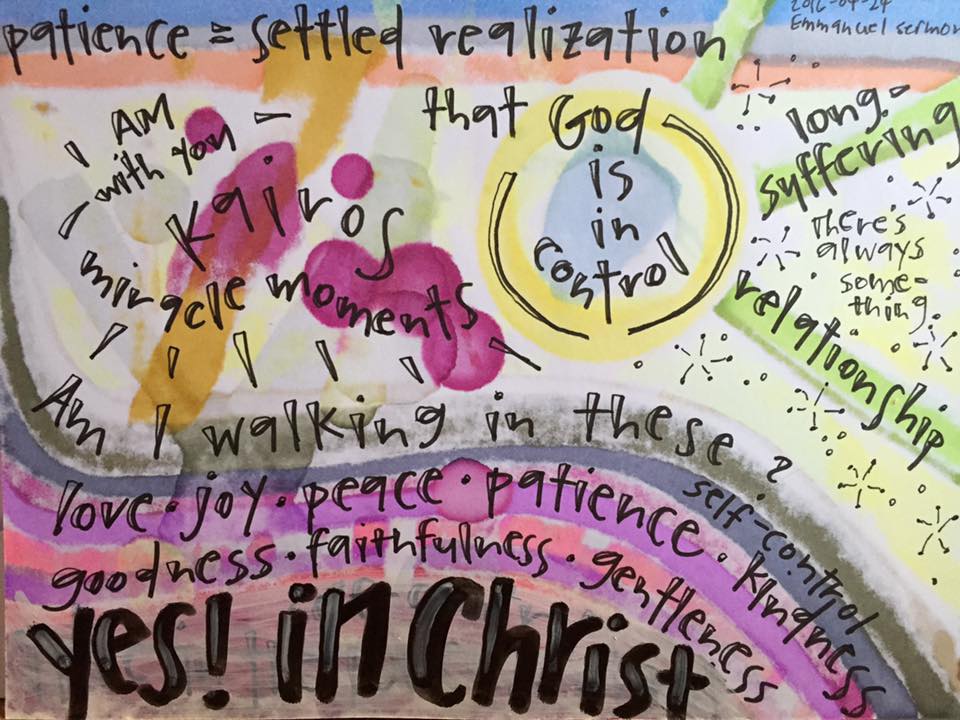 2016-04-24
Emmanuel sermon
patience = settled realization
that God
is
in
control
long-
suffering
There's
always
some-
thing.
relationship
I AM
with you
kairos
miracle moments
Am I walking in these?
love · joy · peace · patience · kindness
goodness · faithfulness · gentleness
self-control
yes! in Christ